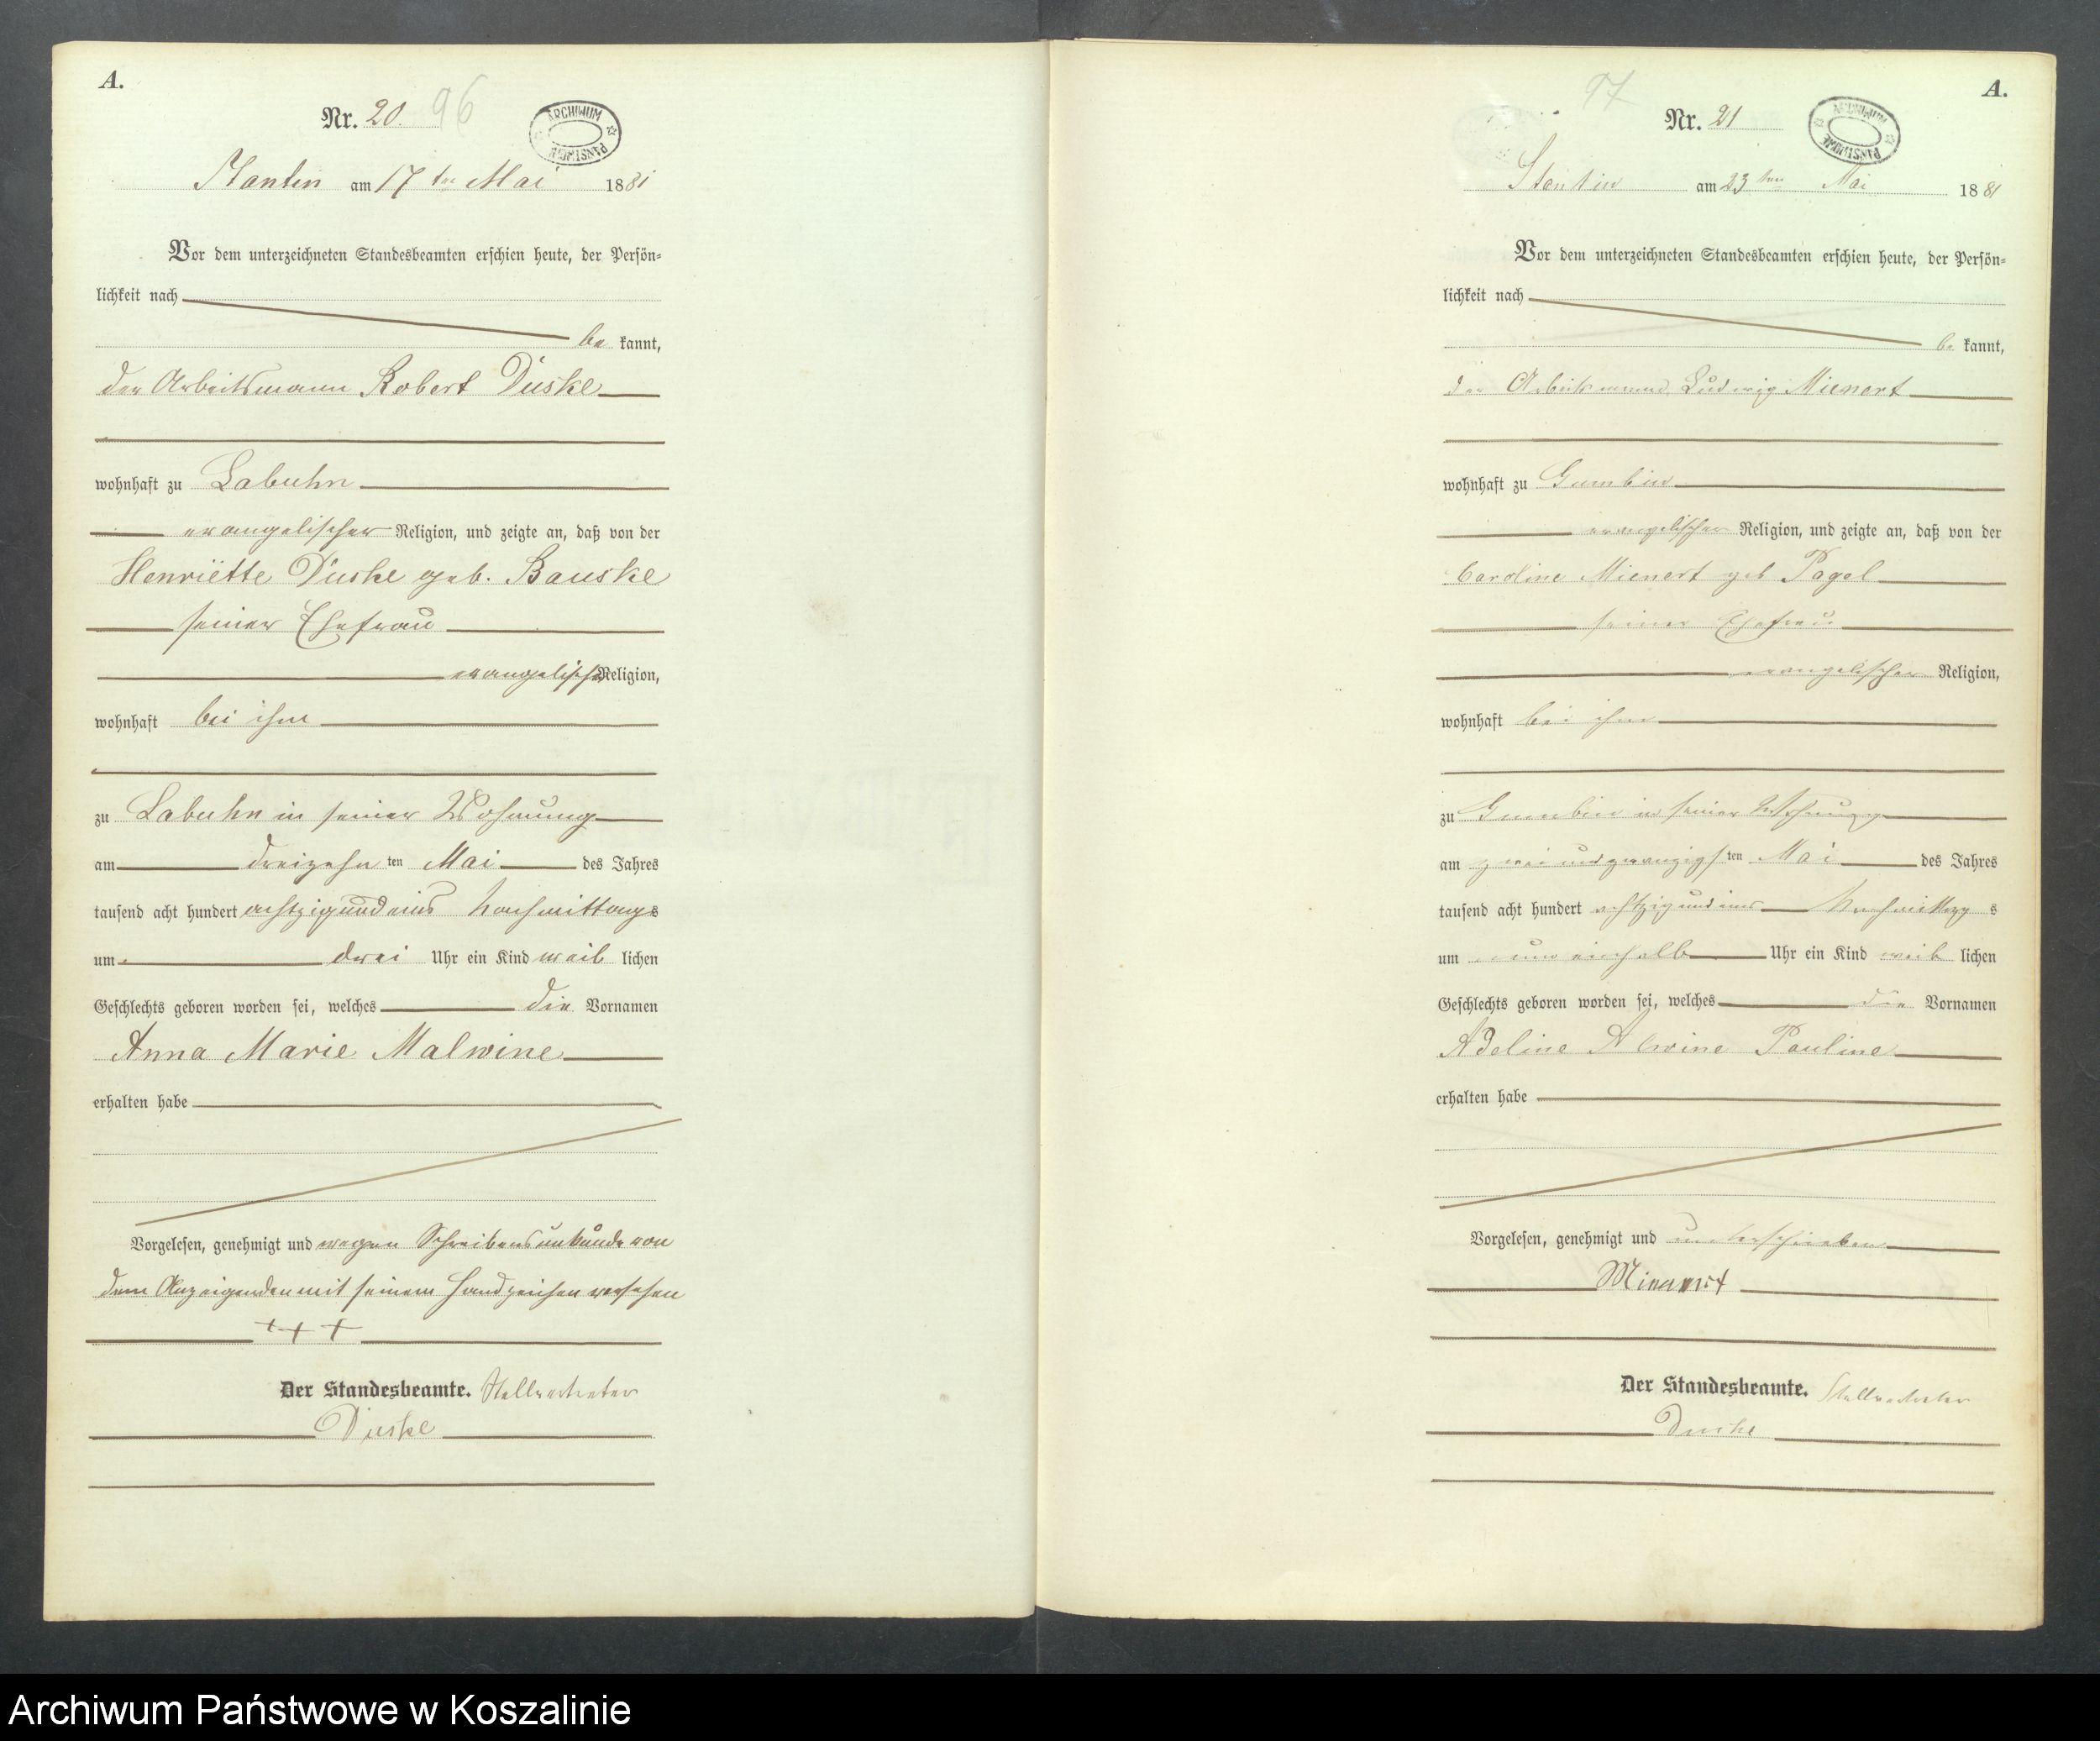 A.
Nr. 20. 96
ARCHIWUM PAŃSTWOWE
Stantin am 17 ten Mai 1881
Vor dem unterzeichneten Standesbeamten erschien heute, der Persön-
lichkeit nach
be kannt,
der Arbeitsmann Robert Duske
wohnhaft zu Labuhn
evangelischer Religion, und zeigte an, daß von der
Henriette Duske geb. Bauske
seiner Ehefrau
evangelischer Religion,
wohnhaft bei ihm
zu Labuhn in seiner Wohnung
am dreizehn ten Mai des Jahres
tausend acht hundert achtzig und eins Nachmittags
um drei Uhr ein Kind weib lichen
Geschlechts geboren worden sei, welches die Vornamen
Anna Marie Malwine
erhalten habe
Vorgelesen, genehmigt und wegen Schreibensunkunde von
dem Anzeigenden mit seinem Handzeichen versehen
+++
Der Standesbeamte. Stellvertreter
Duske
A.
97
Nr. 21
ARCHIWUM PAŃSTWOWE
Stantin am 23 ten Mai 1881
Vor dem unterzeichneten Standesbeamten erschien heute, der Persön-
lichkeit nach
be kannt,
der Arbeitsmann Ludwig Mienert
wohnhaft zu Gumbin
evangelischer Religion, und zeigte an, daß von der
Caroline Mienert geb Pagel
seiner Ehefrau
evangelischer Religion,
wohnhaft bei ihm
zu Gumbin in seiner Wohnung
am zwei und zwanzigs ten Mai des Jahres
tausend acht hundert achtzig und eins Nachmittag s
um neun einhalb Uhr ein Kind weib lichen
Geschlechts geboren worden sei, welches die Vornamen
Adeline Alwine Pauline
erhalten habe
Vorgelesen, genehmigt und unterschrieben
Minnert
Der Standesbeamte. Stellvertreter
Duske
Archiwum Państwowe w Koszalinie